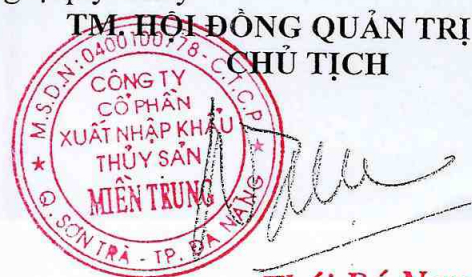 TM. HỘI ĐỒNG QUẢN TRỊ
CHỦ TỊCH
M.S.D.N:0400100778-C.T.C.P
CÔNG TY
CỔ PHẦN
XUẤT NHẬP KHẨU
THỦY SẢN
MIỀN TRUNG
Q. SƠN TRÀ - TP. ĐÀ NẴNG